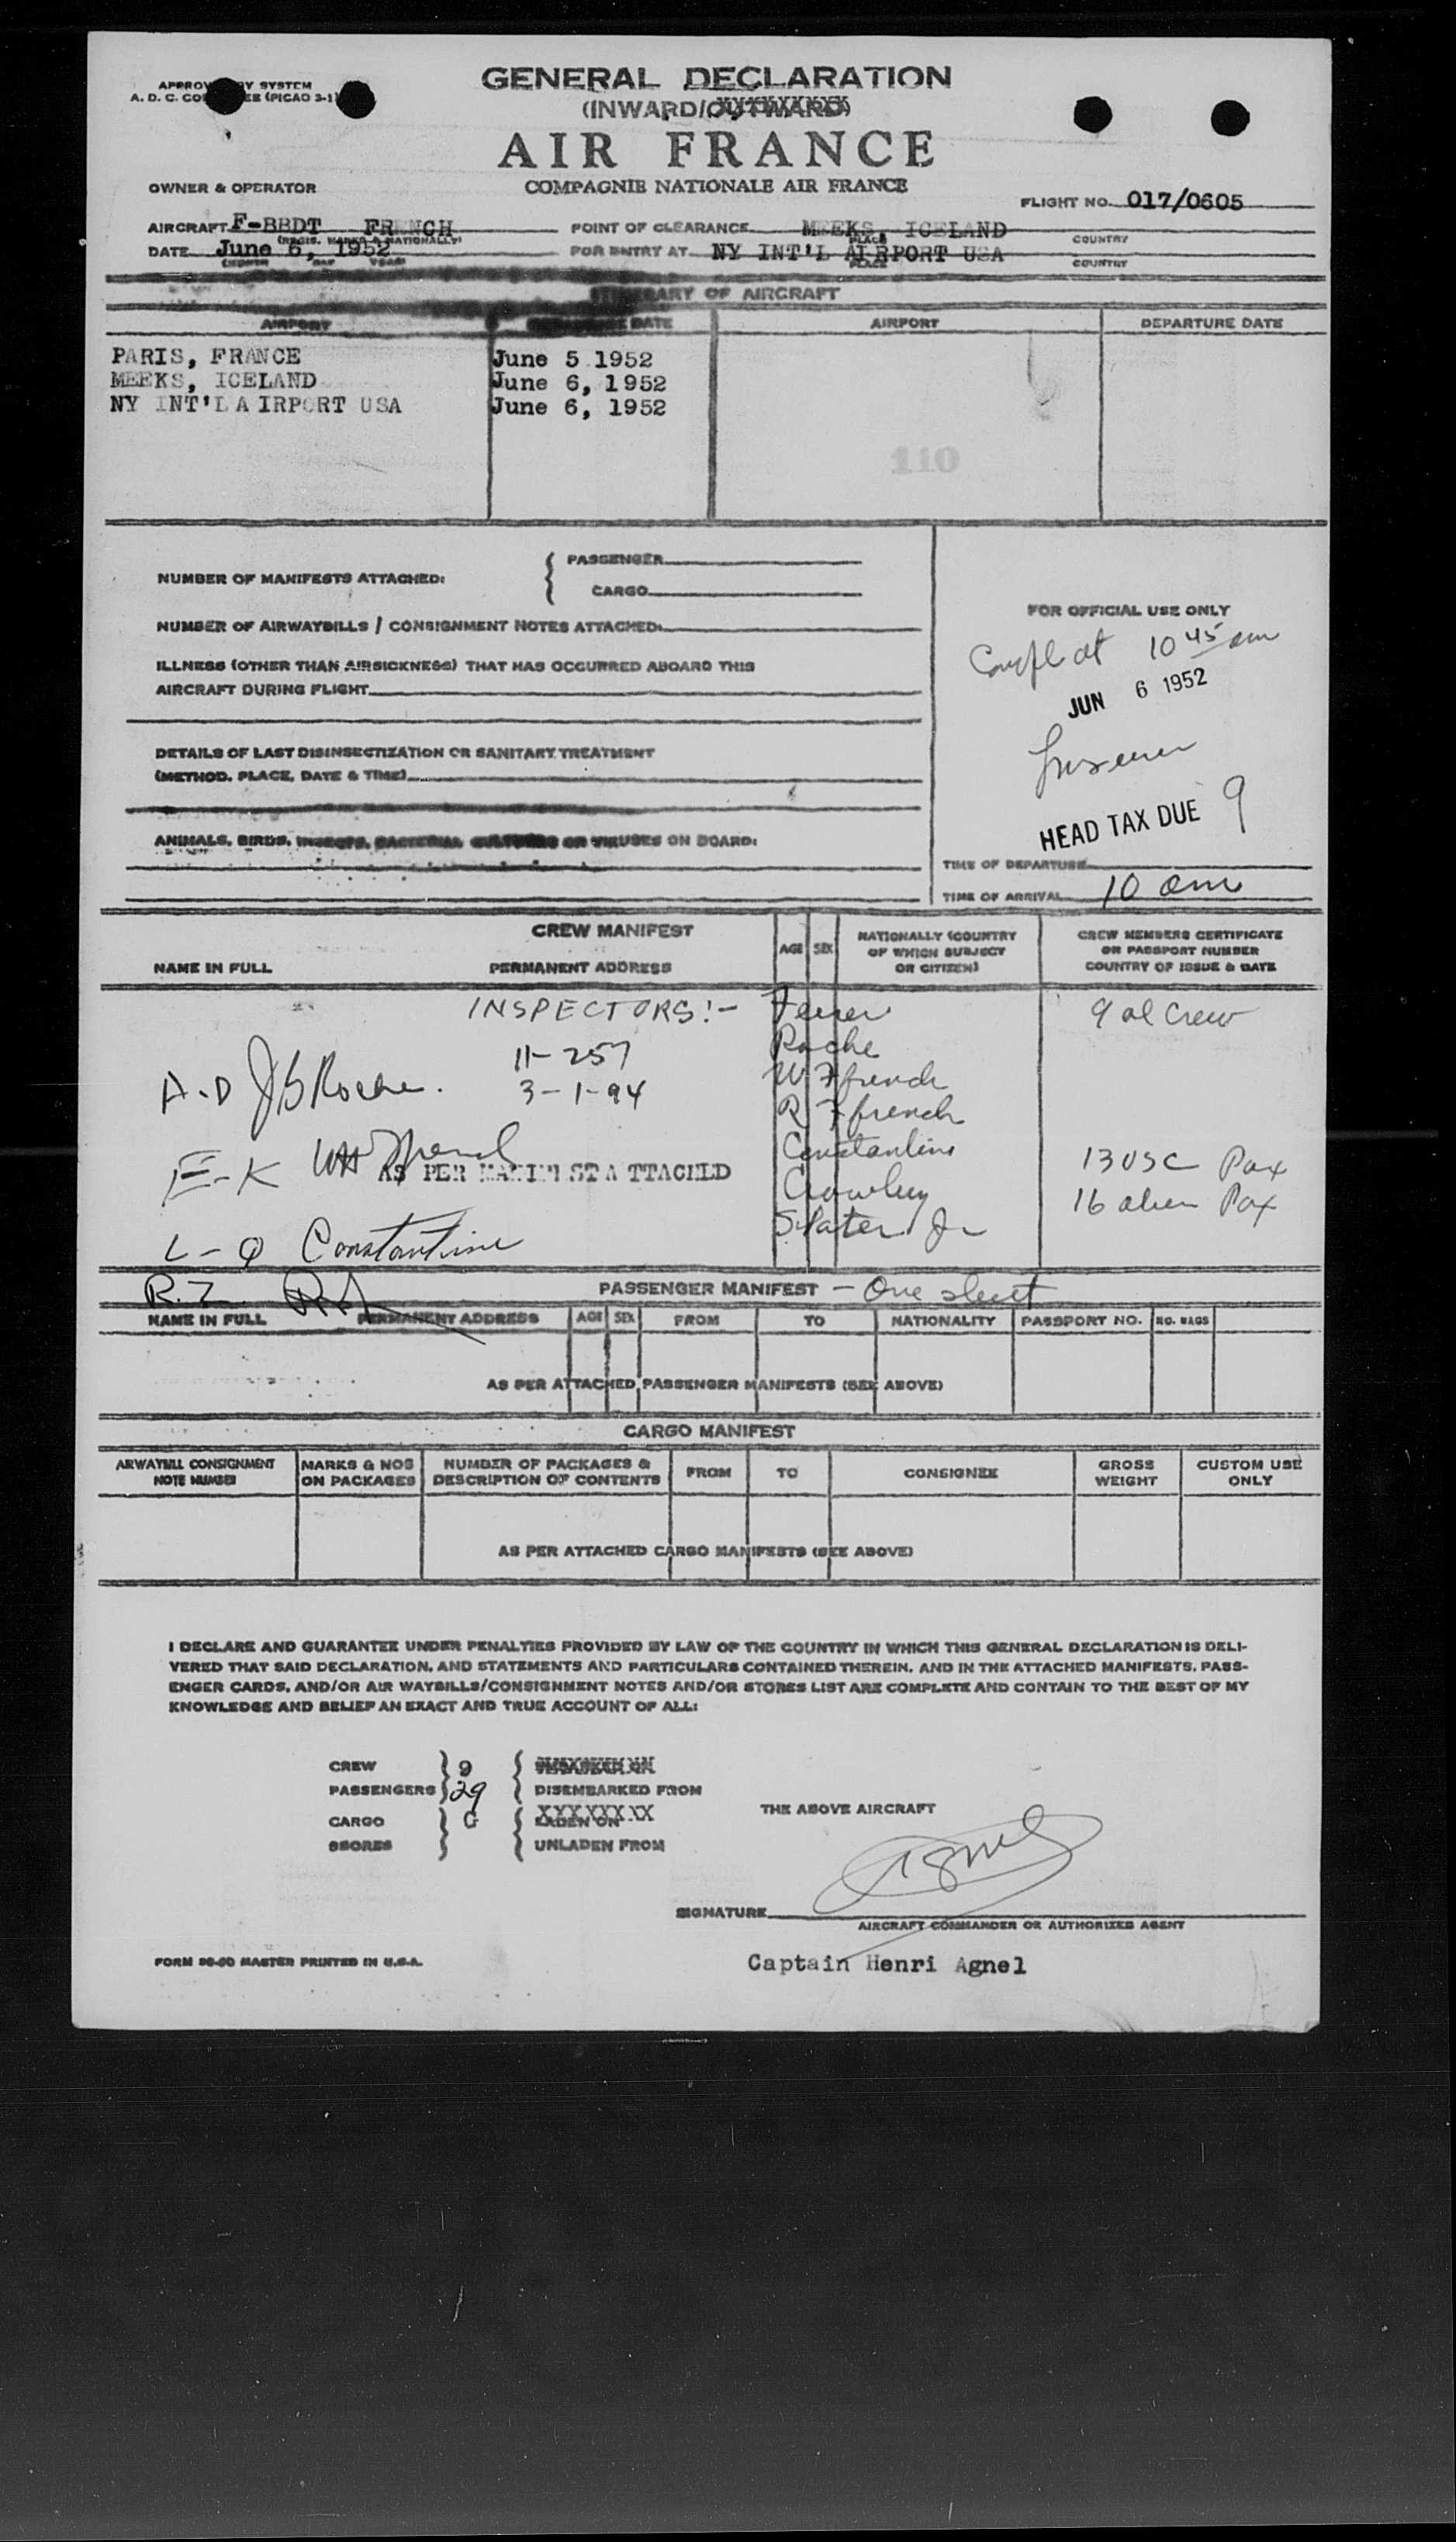 GENERAL DECLARATION
(INWARD/OUTWARD)
AIR FRANCE
COMPAGNIE NATIONALE AIR FRANCE
OWNER & OPERATOR
FLIGHT NO. 017/0605
AIRCRAFT F-BBDT FRENCH
POINT OF CLEARANCE MEEKS, ICELAND
(REGIS. MARKS & NATIONALLY)
PLACE
COUNTRY
DATE June 6, 1952
FOR ENTRY AT NY INT'L AIRPORT USA
(MONTH DAY YEAR)
PLACE
COUNTRY
OF AIRCRAFT
AIRPORT DATE AIRPORT DEPARTURE DATE
PARIS, FRANCE June 5 1952
MEEKS, ICELAND June 6, 1952
NY INT'L A IRPORT USA June 6, 1952
110
NUMBER OF MANIFESTS ATTACHED:
PASSENGER
CARGO
NUMBER OF AIRWAYBILLS / CONSIGNMENT NOTES ATTACHED:
ILLNESS (OTHER THAN AIRSICKNESS) THAT HAS OCCURRED ABOARD THIS
AIRCRAFT DURING FLIGHT
DETAILS OF LAST DISINSECTIZATION OR SANITARY TREATMENT
(METHOD, PLACE, DATE & TIME)
ANIMALS, BIRDS, INSECTS, BACTERIAL CULTURES OR VIRUSES ON BOARD:
FOR OFFICIAL USE ONLY
at 10 45 am
JUN 6 1952
HEAD TAX DUE 9
TIME OF DEPARTURE
TIME OF ARRIVAL 10 am
CREW MANIFEST
NAME IN FULL
PERMANENT ADDRESS
AGE
SEX
NATIONALLY (COUNTRY
OF WHICH SUBJECT
OR CITIZEN)
CREW MEMBERS CERTIFICATE
OR PASSPORT NUMBER
COUNTRY OF ISSUE & DATE
INSPECTORS:-
9 al Crew
Roche
11-257
W F french
A-D J S Roche.
3-1-94
R F french
Constantine
E-K
AS PER MANIFEST A TTACHED
Crowley
13 USC Pax
16 alien Pax
Slater Jr
L-Q Constantine
R-Z
PASSENGER MANIFEST - One sheet
NAME IN FULL PERMANENT ADDRESS AGE SEX FROM TO NATIONALITY PASSPORT NO. NO. BAGS
AS PER ATTACHED PASSENGER MANIFESTS (SEE ABOVE)
CARGO MANIFEST
ARWAYBILL CONSIGNMENT
NOTE NUMBER
MARKS & NOS
ON PACKAGES
NUMBER OF PACKAGES &
DESCRIPTION OF CONTENTS
FROM
TO
CONSIGNEE
GROSS
WEIGHT
CUSTOM USE
ONLY
AS PER ATTACHED CARGO MANIFESTS (SEE ABOVE)
I DECLARE AND GUARANTEE UNDER PENALTIES PROVIDED BY LAW OF THE COUNTRY IN WHICH THIS GENERAL DECLARATION IS DELI-
VERED THAT SAID DECLARATION, AND STATEMENTS AND PARTICULARS CONTAINED THEREIN, AND IN THE ATTACHED MANIFESTS, PASS-
ENGER CARDS, AND/OR AIR WAYBILLS/CONSIGNMENT NOTES AND/OR STORES LIST ARE COMPLETE AND CONTAIN TO THE BEST OF MY
KNOWLEDGE AND BELIEF AN EXACT AND TRUE ACCOUNT OF ALL:
CREW 9
PASSENGERS 29 DISEMBARKED FROM
THE ABOVE AIRCRAFT
CARGO G LADEN ON
SSORES UNLADEN FROM
SIGNATURE Agnel
AIRCRAFT COMMANDER OR AUTHORIZED AGENT
FORM MASTER PRINTED IN U.S.A.
Captain Henri Agnel